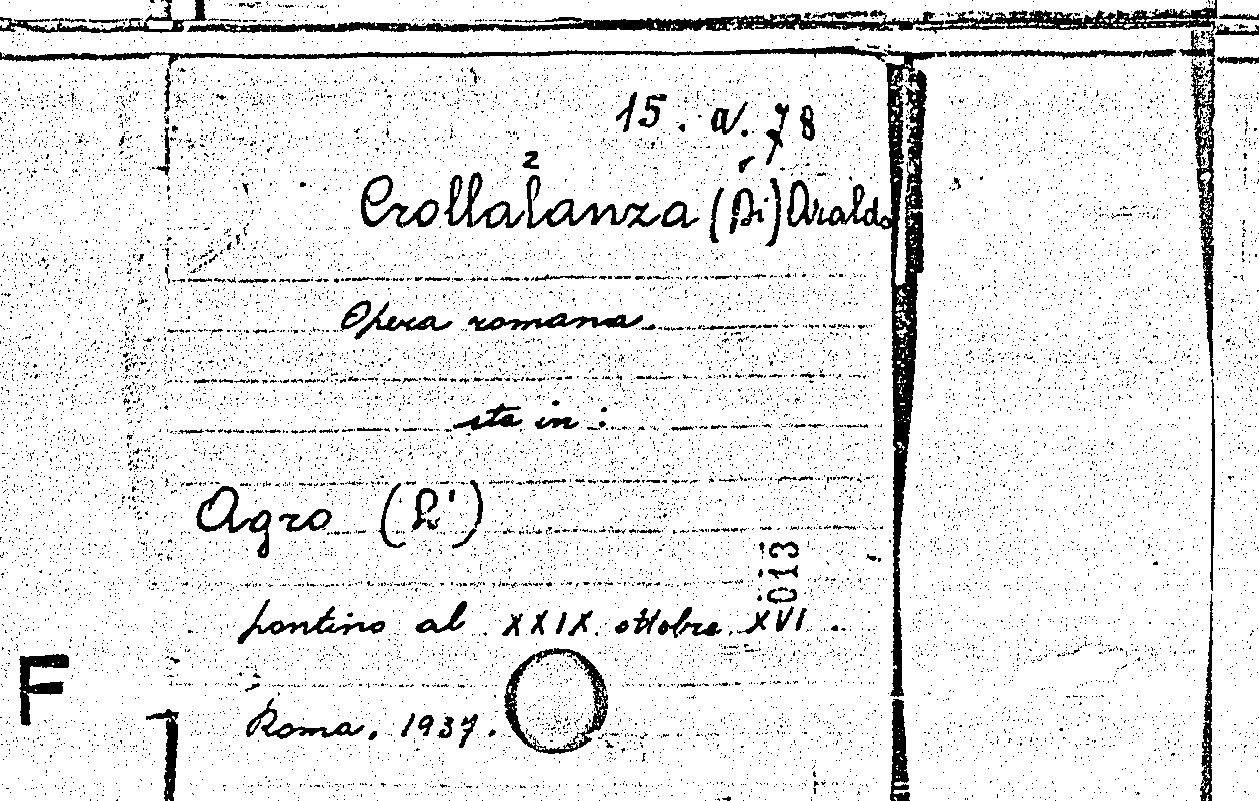 15. a. 78
2
Crollalanza (Di) Araldo
Opera romana.
sta in :
Agro (L')
013
pontino al XXIX ottobre XVI.
F
Roma, 1937.